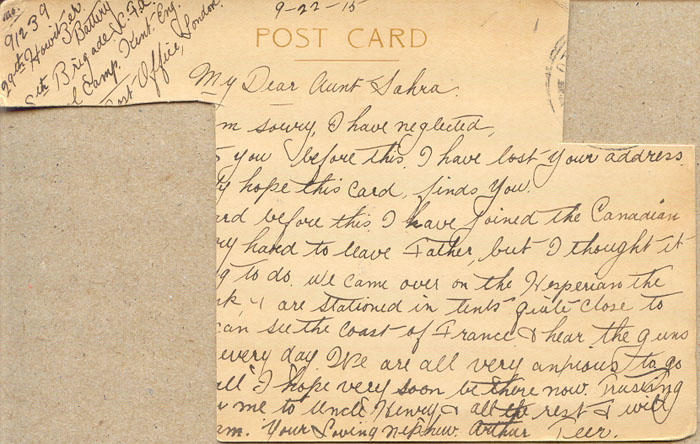 9-22-15
no.
91239
29th Howitzer
Battery
8th Brigade C.F.A.
Camp. Kent. Eng.
Post Office, London.
POST CARD
My Dear Aunt Sahra.
m sorry, I have neglected,
you before this. I have lost your address
hope this card, finds you.
ard before this. I have joined the Canadian
ry hard to leave Father, but I thought it
g to do. We came over on the Hesperian the
nk, & are stationed in tents quite close to
can see the coast of France & hear the guns
every day. We are all very anxious to go
all I hope very soon be there now. Trusting
me to Uncle Henry & all the rest & will
am. Your Loving nephew. Arthur Teer.